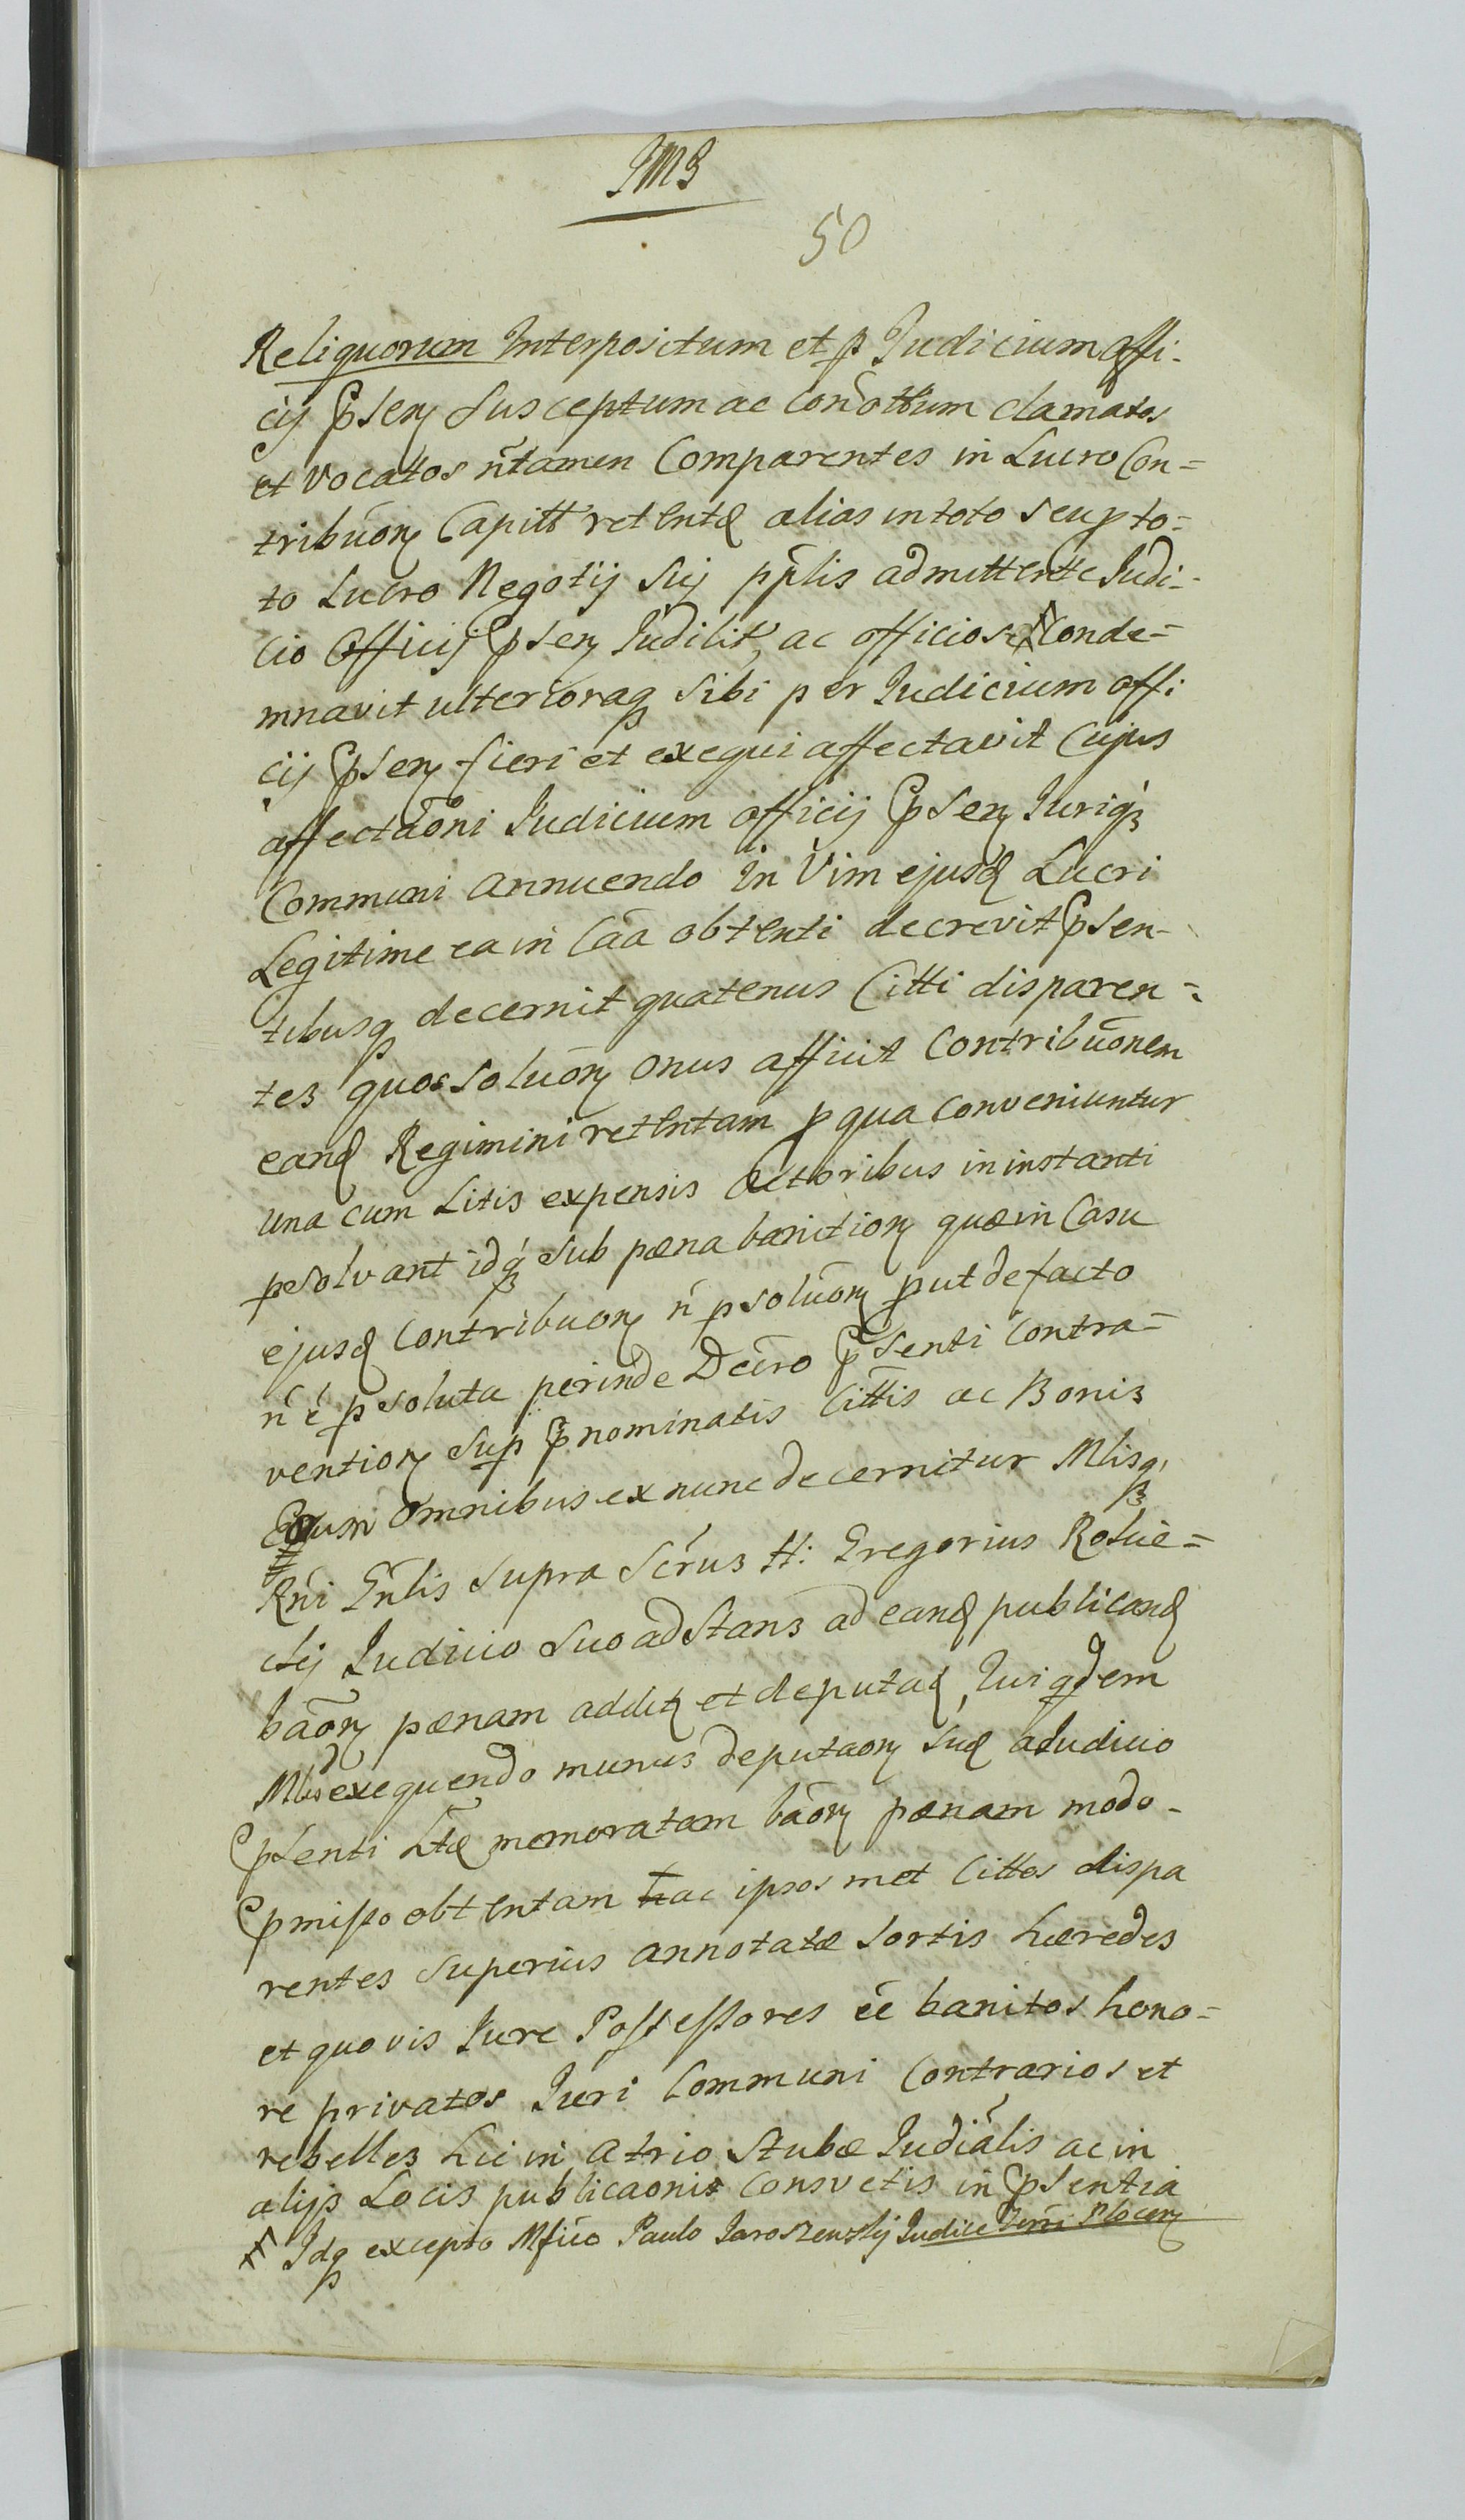 JMJ
50
Reliquorum Interpositum et p Judicium offi-
cij Pptsen Susceptum ac conottum clamatos
et vocatos ñtamen Comparentes in Lucro Con=
tribuōn Capitt retentę alias in toto seu p to=
to Lucro Negotij Sui pp̄lis admittente Judi-
cio Officij Ppsen Judilit, ac officiose # Conde=
mnavit ulterioraq sibi per Judicium offi
cij Ppsen fieri et exequi affectavit Cujus
affectaōni Judicium officij Ppsen Juriq3
Communi annuendo in Vim ejusd Lucri
Legitime ea in Caā obtenti decrevit Ppsen-
tibusq decernit quatenus Citti disparen=
tes quos soluōn onus afficit Contribuōnem
eand Regimini retentam p qua conveniuntur
una cum Litis expensis Actoribus in instanti
psolvant idq3 sub pœna banition quæ in Casu
ejusd contribuon ń psoluōn put de facto
ń é psoluta perinde Decro Ppsenti Contra=
vention Sup Ppnominatis Cittis ac Bonis
Eorum omnibus ex nunc decernitur Mlisq3
Rńi Gńlis supra Scrus H: Gregorius Rotwe=
skij Judicio suo adstans ad eand publicand
baōn pœnam addit et deputat, Qui qdem
Mlis exequendo munus deputaon suę a Judicio
Ppsenti Lte memoratam baōn pœnam modo-
Ppmisso obtentam hac ipsos met Cittos dispa
rentes superius annotatæ sortis hæredes
et quovis Jure Possessores ēe banitos hono=
re privatos Juri Communi Contrarios et
rebelles hic in Atrio Stubæ Judiālis ac in
alijs Locis publicaonis consvetis in Ppsentia
# Idq excepto Mfico Paulo Jaroszewskij Judice Trri Plocen